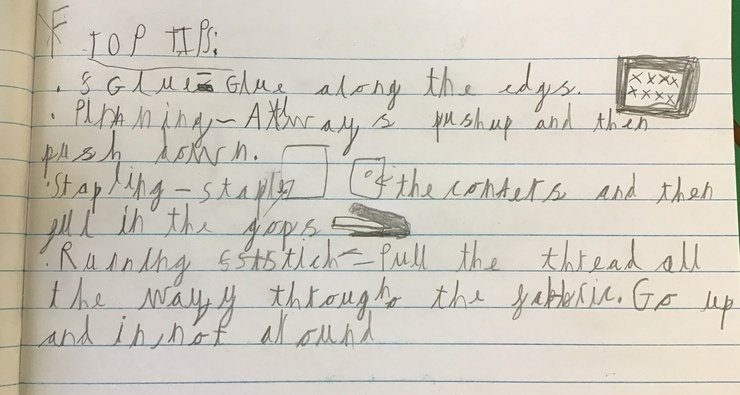 TOP TIPS:
• Glue = Glue along the edgs.
• Pinning - Allways push up and then
push down.
• Stapling - staple the conters and then
pull in the gops
• Running sstich = Pull the thread all
the way through the fabbric. Go up
and in, not around